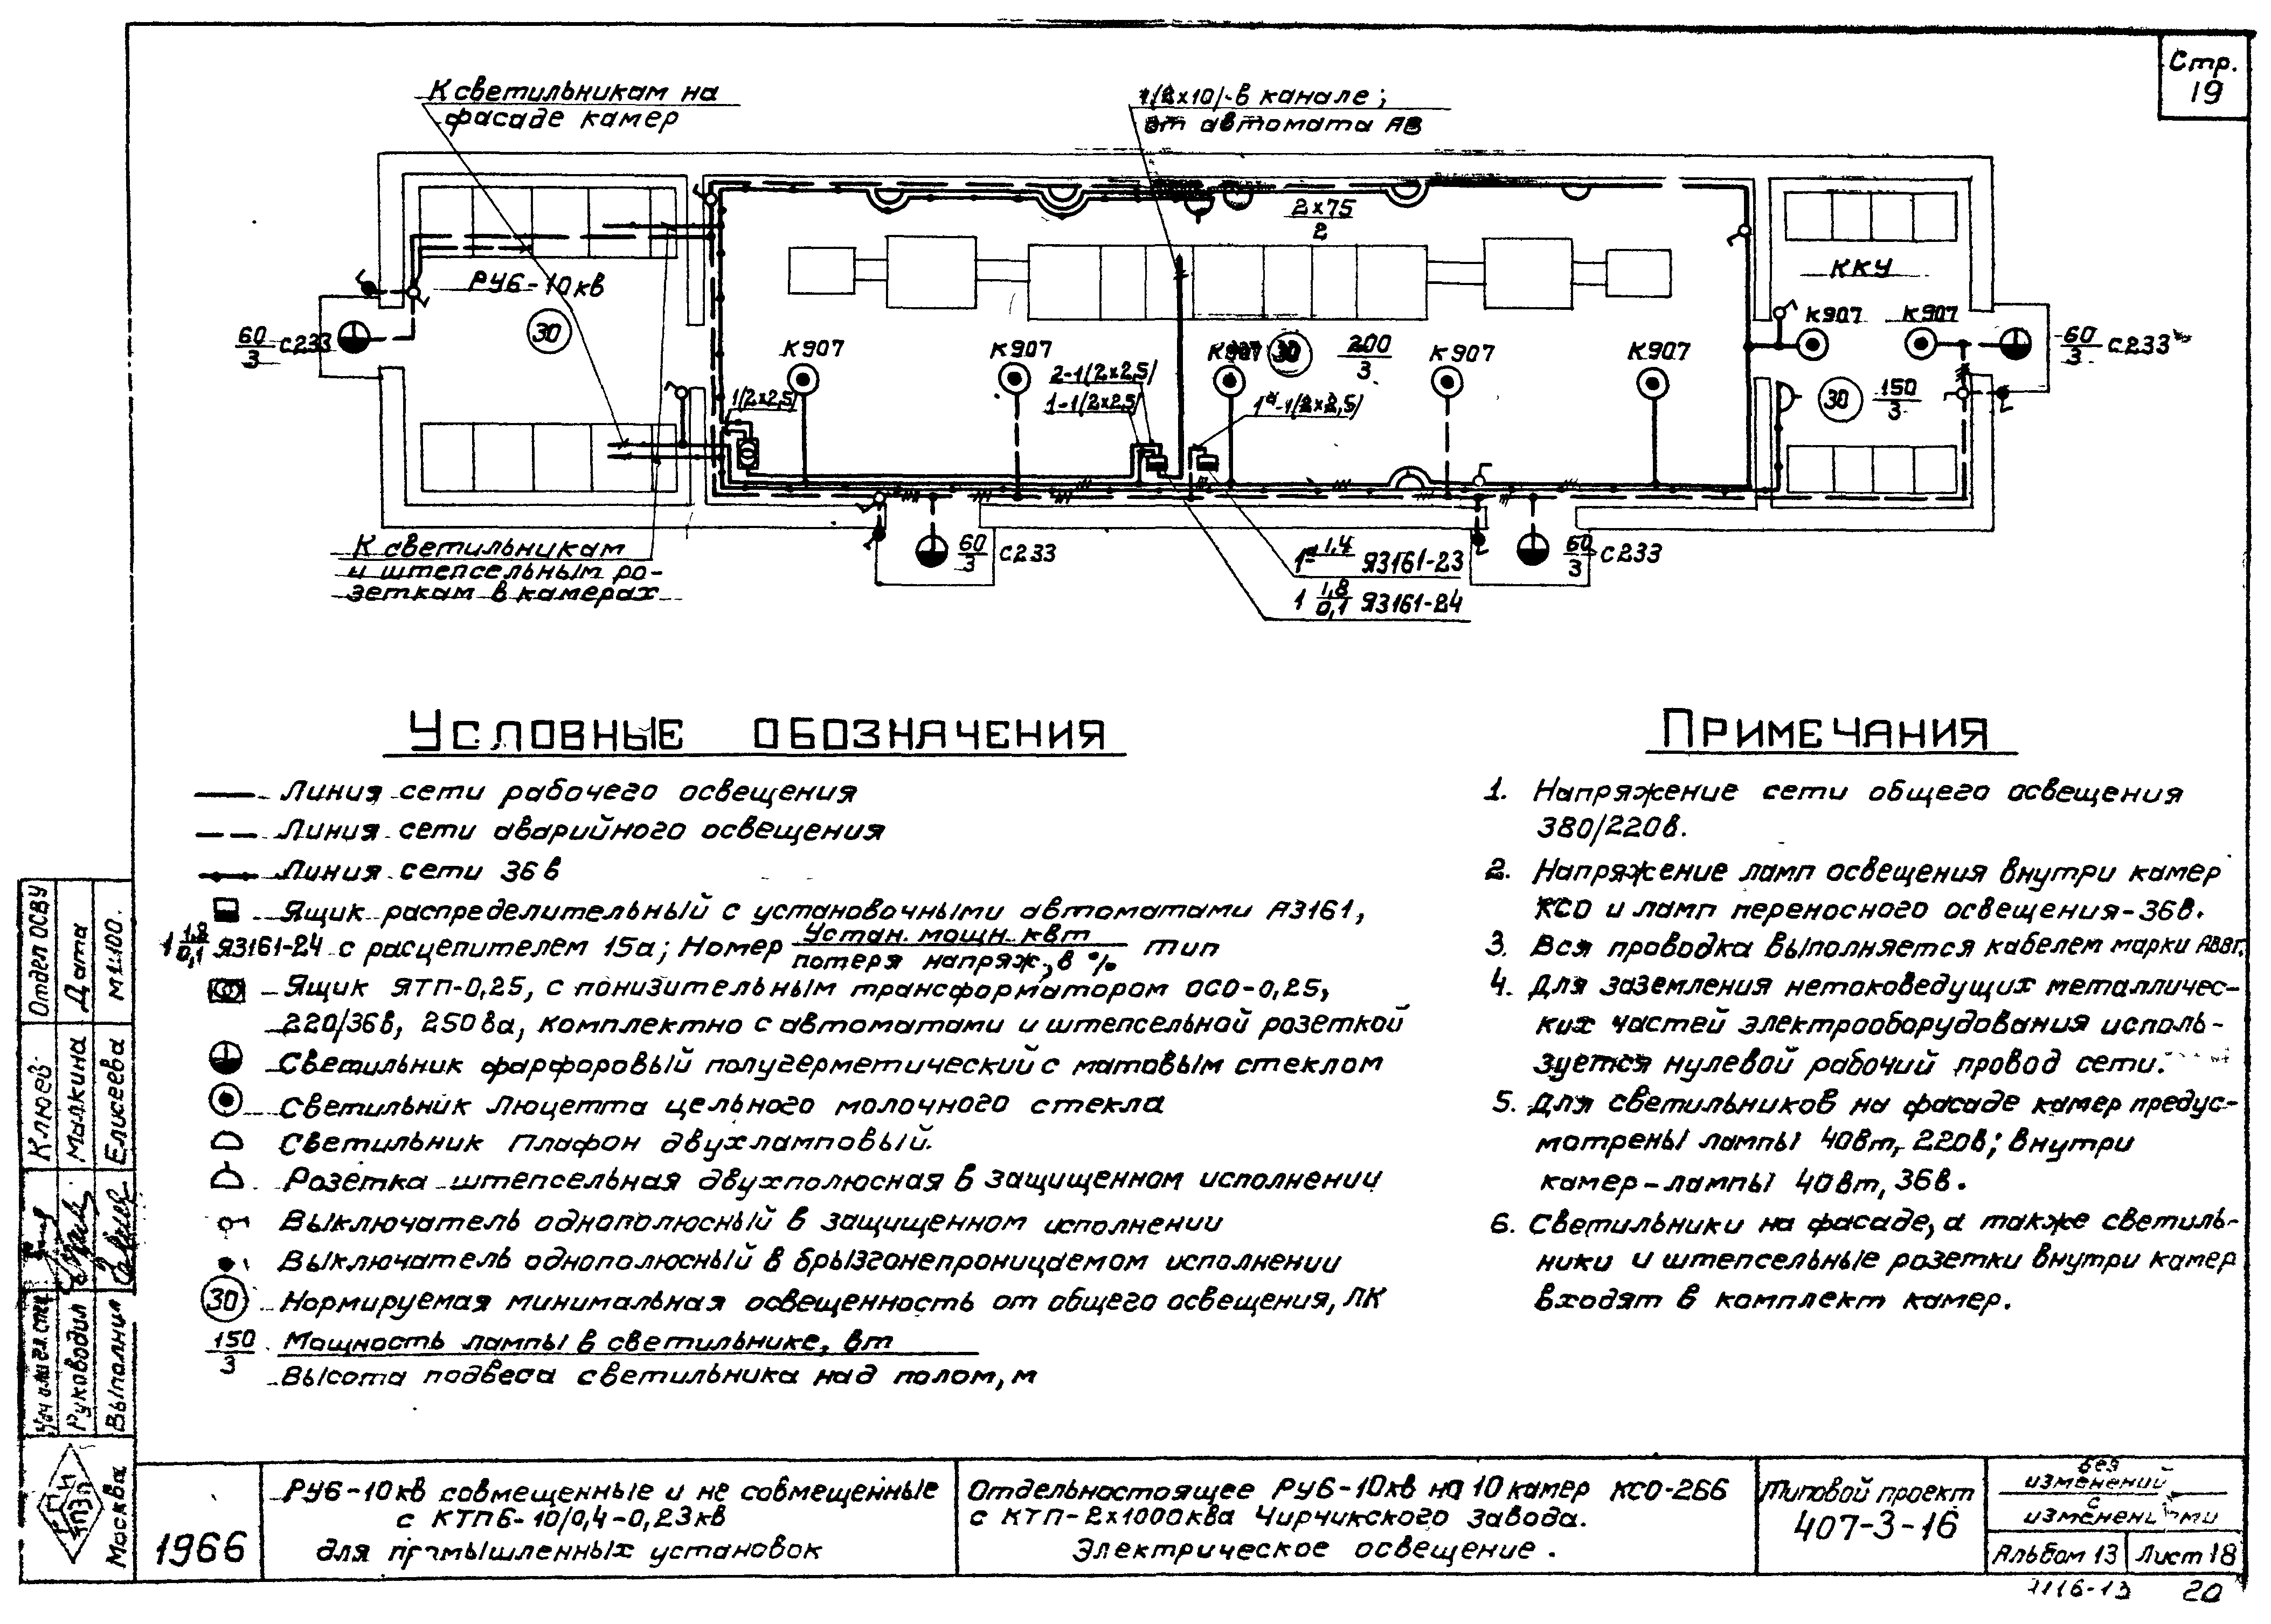 Стр.
19
К светильникам на
фасаде камер
1/2х10/-в канале;
от автомата АВ
2х75
2
РУ6-10кв
30
60
3
с233
К907
К907
К907
30
200
3
К907
К907
ККУ
К907
К907
60
3
с233
30
150
3
1/2х2,5/
2-1/2х2,5/
1-1/2х2,5/
1а-1/2х2,5/
К светильникам
и штепсельным ро-
зеткам в камерах
60
3
с233
1а 1,4 ЯЗ161-23
1 1,8
0,1 ЯЗ161-24
60
3
с233
Условные обозначения
Линия сети рабочего освещения
Линия сети аварийного освещения
Линия сети 36в
Ящик распределительный с установочными автоматами А3161,
1 1,8
0,1 ЯЗ161-24 с расцепителем 15а; Номер Устан. мощн. квт
потеря напряж., в % тип
Ящик ЯТП-0,25, с понизительным трансформатором ОСО-0,25,
220/36в, 250ва, комплектно с автоматами и штепсельной розеткой
Светильник фарфоровый полугерметический с матовым стеклом
Светильник Люцетта цельного молочного стекла
Светильник Плафон двухламповый.
Розетка штепсельная двухполюсная в защищенном исполнении
Выключатель однополюсный в защищенном исполнении
Выключатель однополюсный в брызгонепроницаемом исполнении
30 Нормируемая минимальная освещенность от общего освещения, ЛК
150 Мощность лампы в светильнике, вт
3 Высота подвеса светильника над полом, м
Примечания
1. Напряжение сети общего освещения
380/220в.
2. Напряжение ламп освещения внутри камер
КСО и ламп переносного освещения-36в.
3. Вся проводка выполняется кабелем марки АВВГ.
4. Для заземления нетоковедущих металличес-
ких частей электрооборудования исполь-
зуется нулевой рабочий провод сети.
5. Для светильников на фасаде камер предус-
мотрены лампы 40вт, 220в; внутри
камер-лампы 40вт, 36в.
6. Светильники на фасаде, а также светиль-
ники и штепсельные розетки внутри камер
входят в комплект камер.
Отдел ОСВУ
Дата
М1:100.
Клюев
Малкина
Елисеева
Руководил
Выполнил
Москва
1966
РУ6-10кв совмещенные и не совмещенные
с КТП6-10/0,4-0,23кв
для промышленных установок
Отдельностоящее РУ6-10кв на 10 камер КСО-266
с КТП-2х1000ква Чирчикского завода.
Электрическое освещение.
Типовой проект
407-3-16
без
изменений
с
изменениями
Альбом 13
Лист 18
1116-13
20